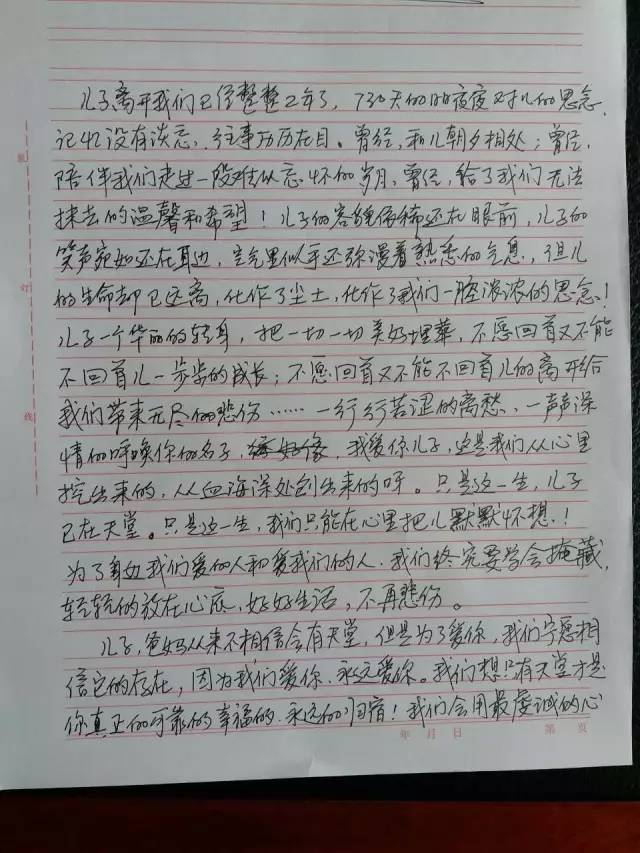 儿子离开我们已经整整2年了，730天的日日夜夜对儿的思念，
记忆没有淡忘、往事历历在目。曾经，和儿朝夕相处；曾经，
陪伴我们走过一段难以忘怀的岁月，曾经，给了我们无法
抹去的温馨和希望！儿子的容貌依稀还在眼前，儿子的
笑声宛如还在耳边，空气里似乎还弥漫着熟悉的气息，但儿
的生命却已远离，化作了尘土，化作了我们一腔浓浓的思念！
儿子一个华丽的转身，把一切一切美好埋葬，不愿回首又不能
不回首儿一步步的成长；不愿回首又不能不回首儿的离开给
我们带来无尽的悲伤……一行行苦涩的离愁、一声声深
情的呼唤你的名子，我爱你儿子，这是我们从心里
挖出来的，从血海深处刨出来的呀。只是这一生，儿子
已在天堂。只是这一生，我们只能在心里把儿默默怀想！
为了身边我们爱的人和爱我们的人，我们终究要学会掩藏，
轻轻的放在心底，好好生活，不再悲伤。
儿子，爸妈从来不相信会有天堂，但是为了爱你，我们宁愿相
信它的存在，因为我们爱你、永远爱你。我们想只有天堂才是
你真正的可靠的幸福的、永远的归宿！我们会用最虔诚的心
年 月 日 第 页
装
订
线